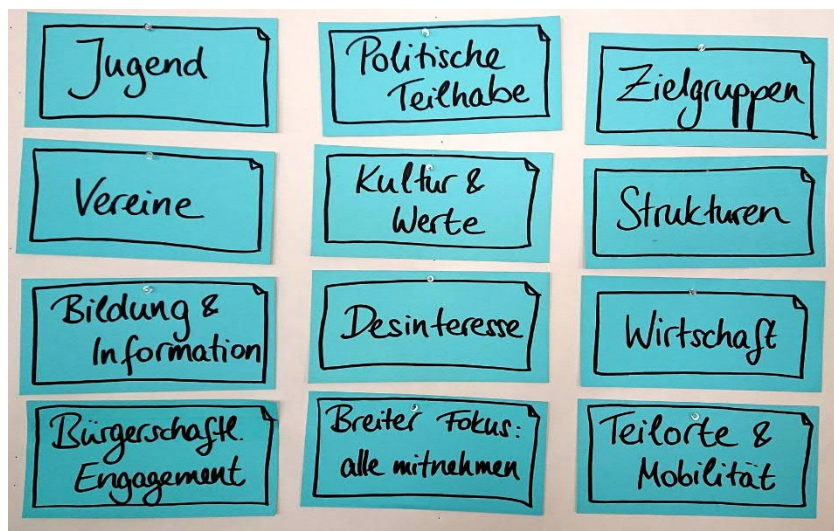 Jugend
Politische
Teilhabe
Zielgruppen
Vereine
Kultur &
Werte
Strukturen
Bildung &
Information
Desinteresse
Wirtschaft
Bürgerschaftl.
Engagement
Breiter Fokus:
alle mitnehmen
Teilorte &
Mobilität